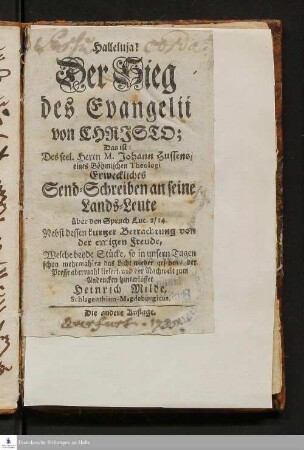 Halleluja!
Der Sieg
des Evangelii
von CHRISTO;
Das ist:
Des sel. Herrn M. Johann Hussens,
eines Böhmischen Theologi
Erweckliches
Send-Schreiben an seine
Lands-Leute
über den Spruch Luc. 2/14.
Nebst dessen kurtzer Betrachtung von
der ewigen Freude,
Welche beyde Stücke, so in unsern Tagen
schon mehrmahlen das Licht wieder gesehen, der
Presse abermahl liefert, und der Nachwelt zum
Andencken hinterlässet
Heinrich Milde,
Die andere Auflage.
Franckesche Stiftungen zu Halle